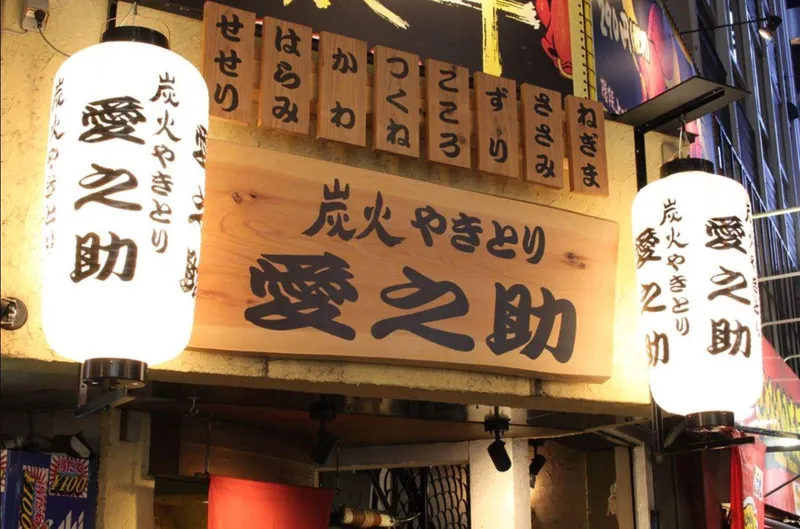 せせり
はらみ
かわ
つくね
こころ
ずり
ささみ
ねぎま
炭火やきとり
愛之助
炭火やきとり
愛之助
炭火やきとり
愛之助
愛之助
290円
100円